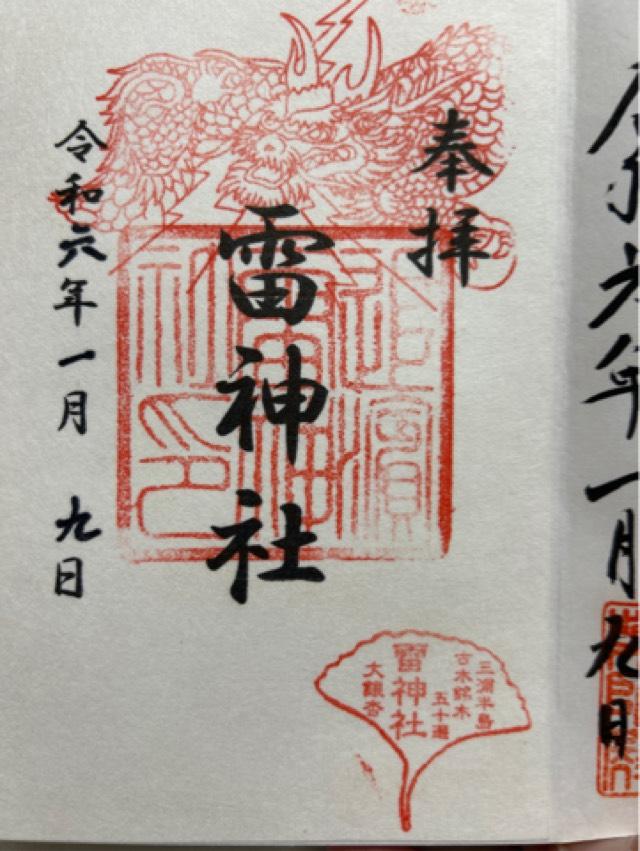 奉拝
雷神社
令和六年一月 九日
追濱
雷神
社印
三浦半島
古木銘木
五十選
雷神社
大銀杏
六年一月九日